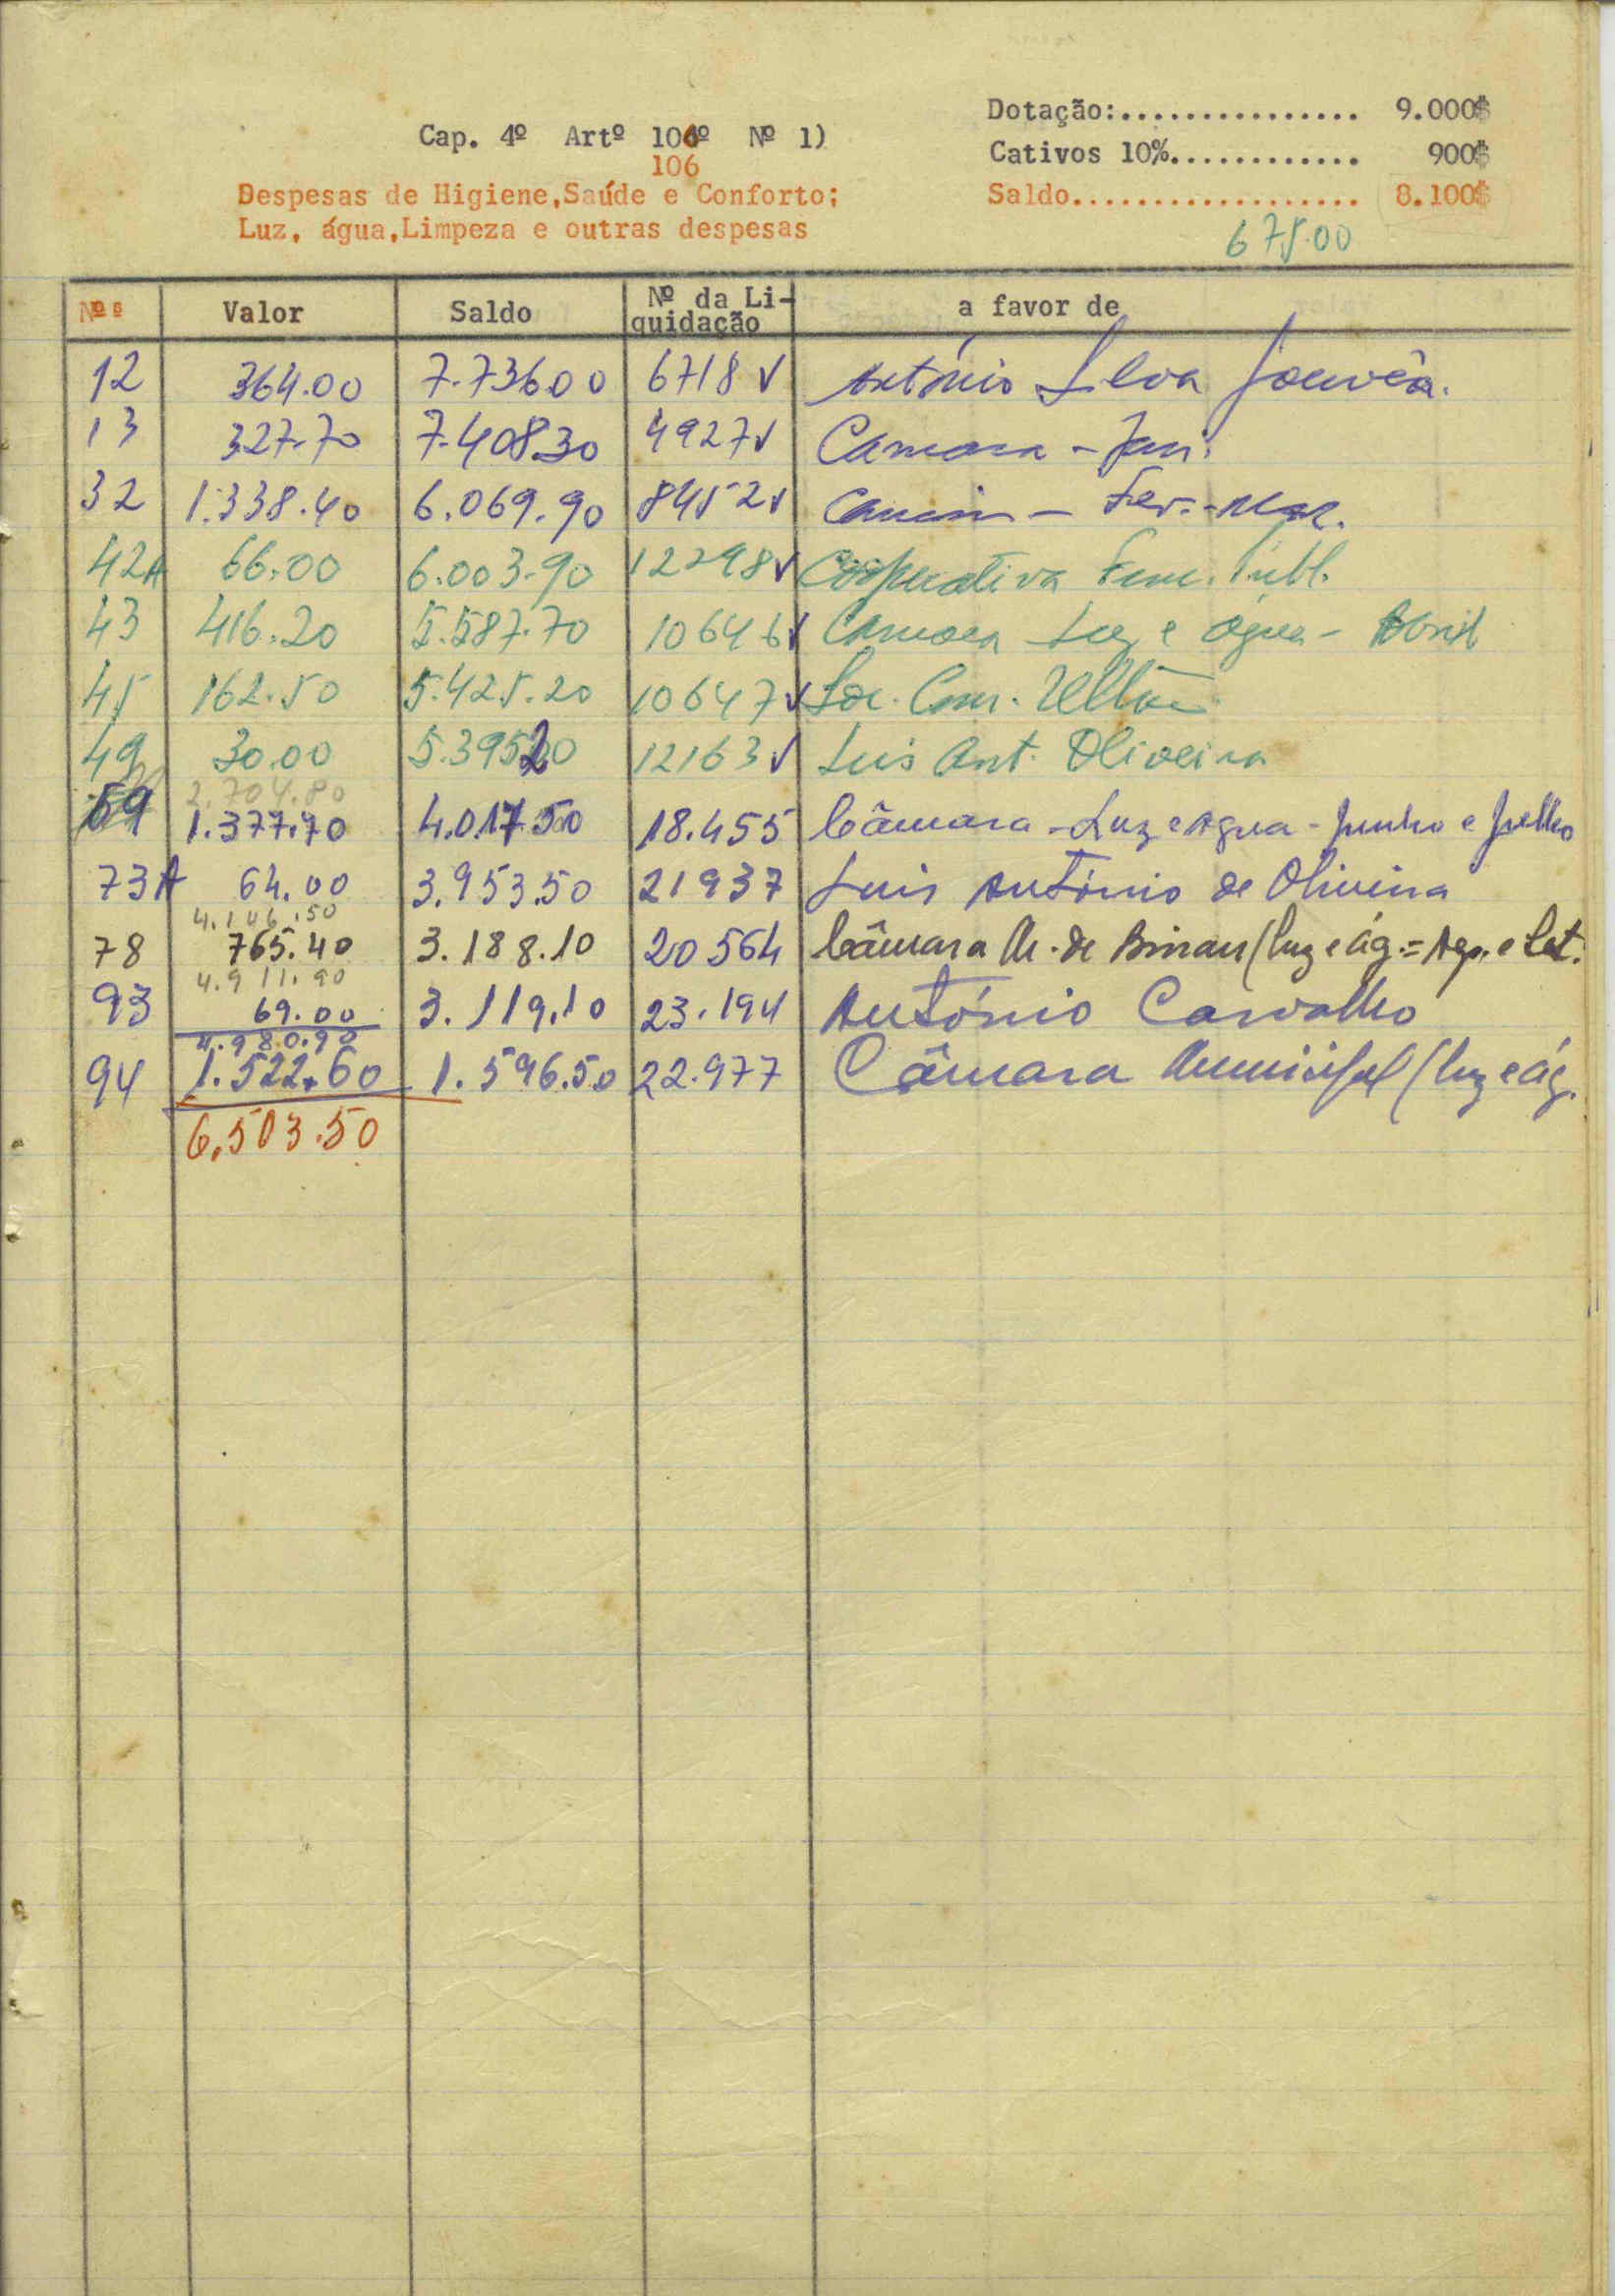 Dotação:................ 9.000$
Cap. 4º Artº 106º Nº 1)
Cativos 10%............ 900$
106
Despesas de Higiene,Saúde e Conforto;
Saldo.................. 8.100$
Luz, água,Limpeza e outras despesas
675.00
Nºs Valor Saldo Nº da Li-quidação a favor de
12 364.00 7.736.00 6718 √ António Silva Gouvêa.
13 327.70 7.408.30 4927 √ Camara - Jan.
32 1.338.40 6.069.90 8452 √ - Fev.-Mar.
42A 66.00 6.003.90 12298 √ Cooperativa Func. Publ.
43 416.20 5.587.70 10646 √ Camara Luz e água - Abril
45 162.50 5.425.20 10647 √ Soc. Com. Ultra
49 30.00 5.395.20 12163 √ Luis Ant. Oliveira
2.704.80
59 1.377.70 4.017.50 18.455 Câmara - Luz e Agua - Junho e Julho
73A 64.00 3.953.50 21937 Luis António de Oliveira
4.146.50
78 765.40 3.188.10 20564 Câmara M. de Bissau (luz e ág.= Ago. e Set.
4.911.90
93 69.00 3.119.10 23.194 António Carvalho
4.980.90
94 1.522.60 1.596.50 22.977 Câmara Municipal (luz e ág.
6.503.50